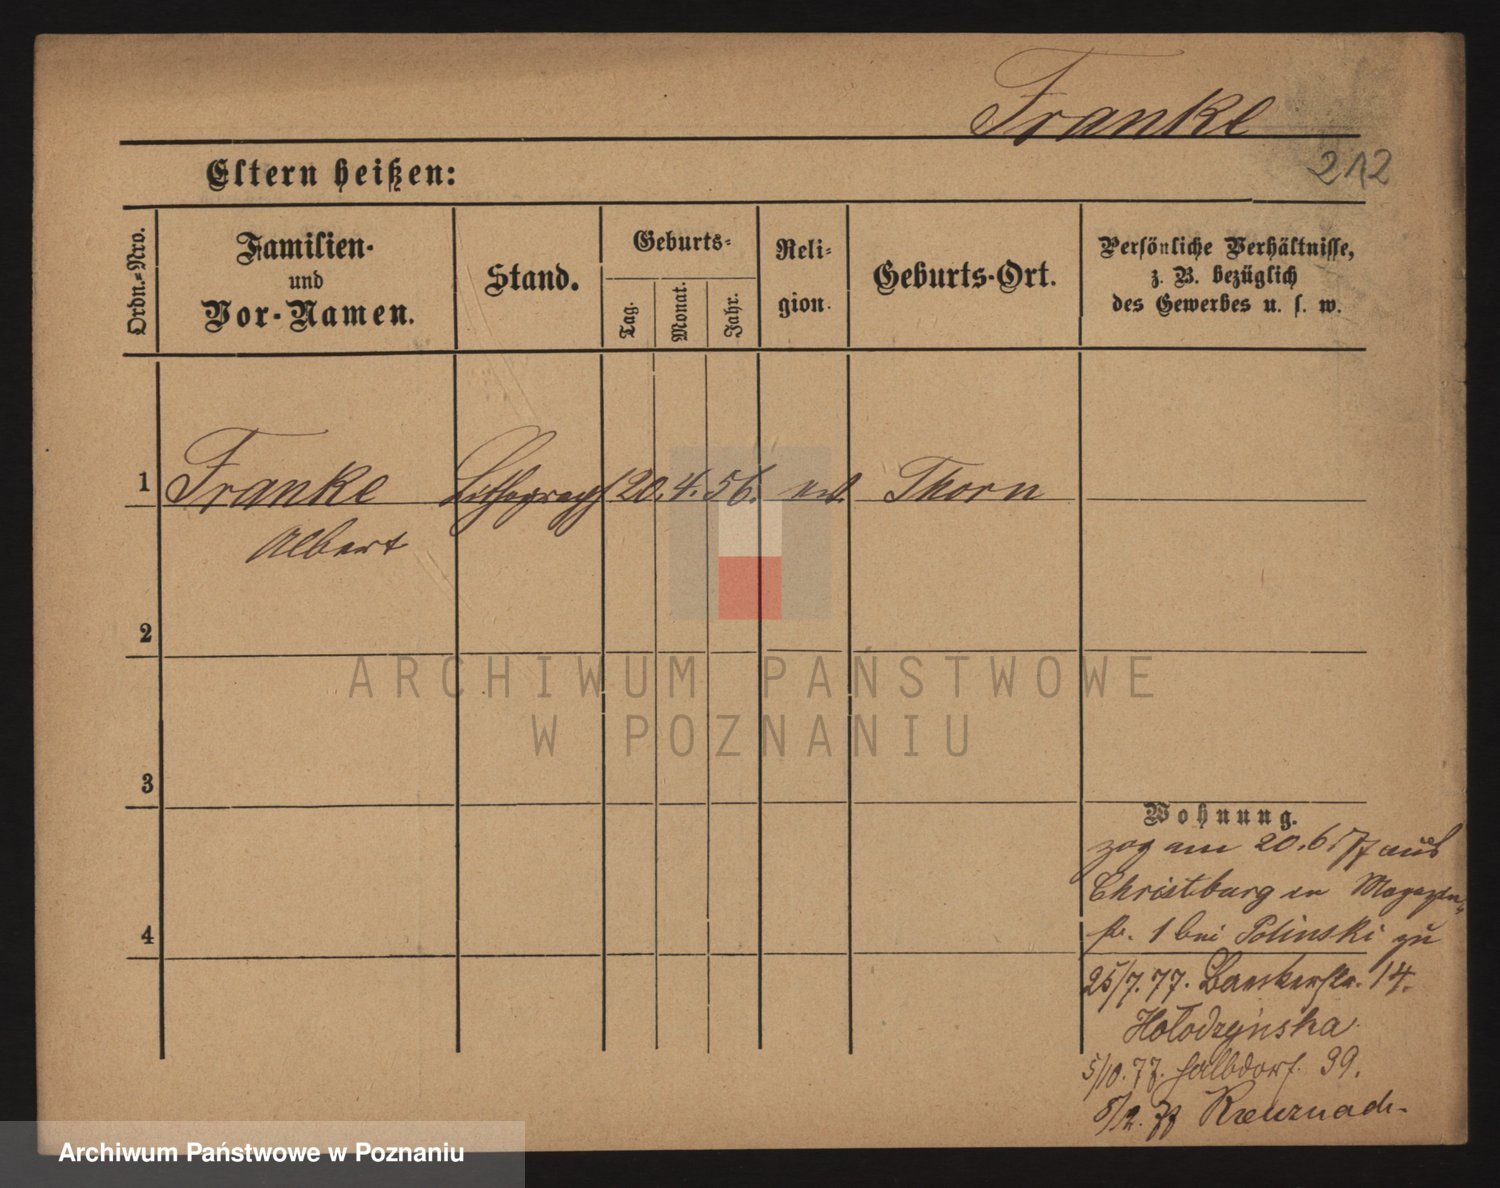 Franke
212
Eltern heißen:
Ordn.-Nro.
Familien-
und
Vor-Namen.
Stand.
Geburts-
Tag.
Monat.
Jahr.
Reli-
gion.
Geburts-Ort.
Persönliche Verhältnisse,
z. B. bezüglich
des Gewerbes u. s. w.
1 Franke Lithograph 20. 4. 56. ev. Thorn
Albert
2
ARCHIWUM PAŃSTWOWE
W POZNANIU
3
Wohnung.
zog am 20.6.77 aus
Christburg in Magazin-
str. 1 bei Polinski zu
4
25/7.77. Baeckerstr. 14.
Hołodzyńska
5/10.77. Halbdorf. 39.
8/12.77 Kreuznach.
Archiwum Państwowe w Poznaniu